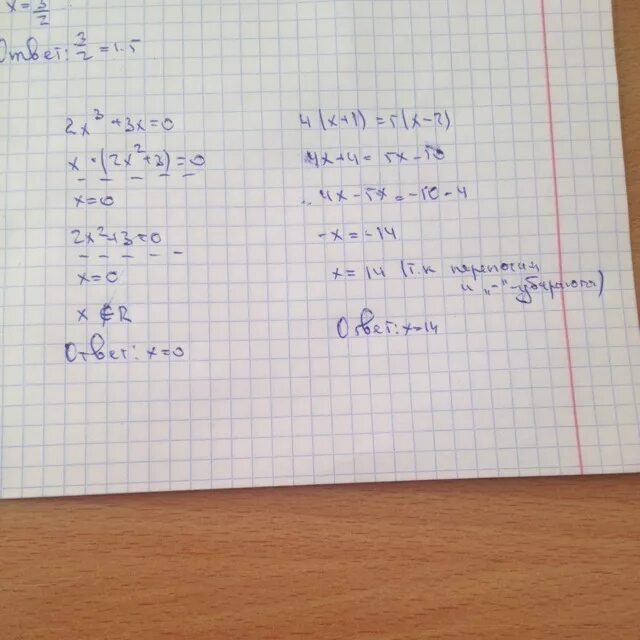 x = 3/2
Ответ: 3/2 = 1.5
2x³ + 3x = 0
x · (2x² + 3) = 0
x = 0
2x² + 3 = 0
x = 0
x ∉ R
Ответ: x = 0
4(x+1) = 5(x-2)
4x + 4 = 5x - 10
4x - 5x = -10 - 4
-x = -14
x = 14 (т.к
и „-"
Ответ: x = 14